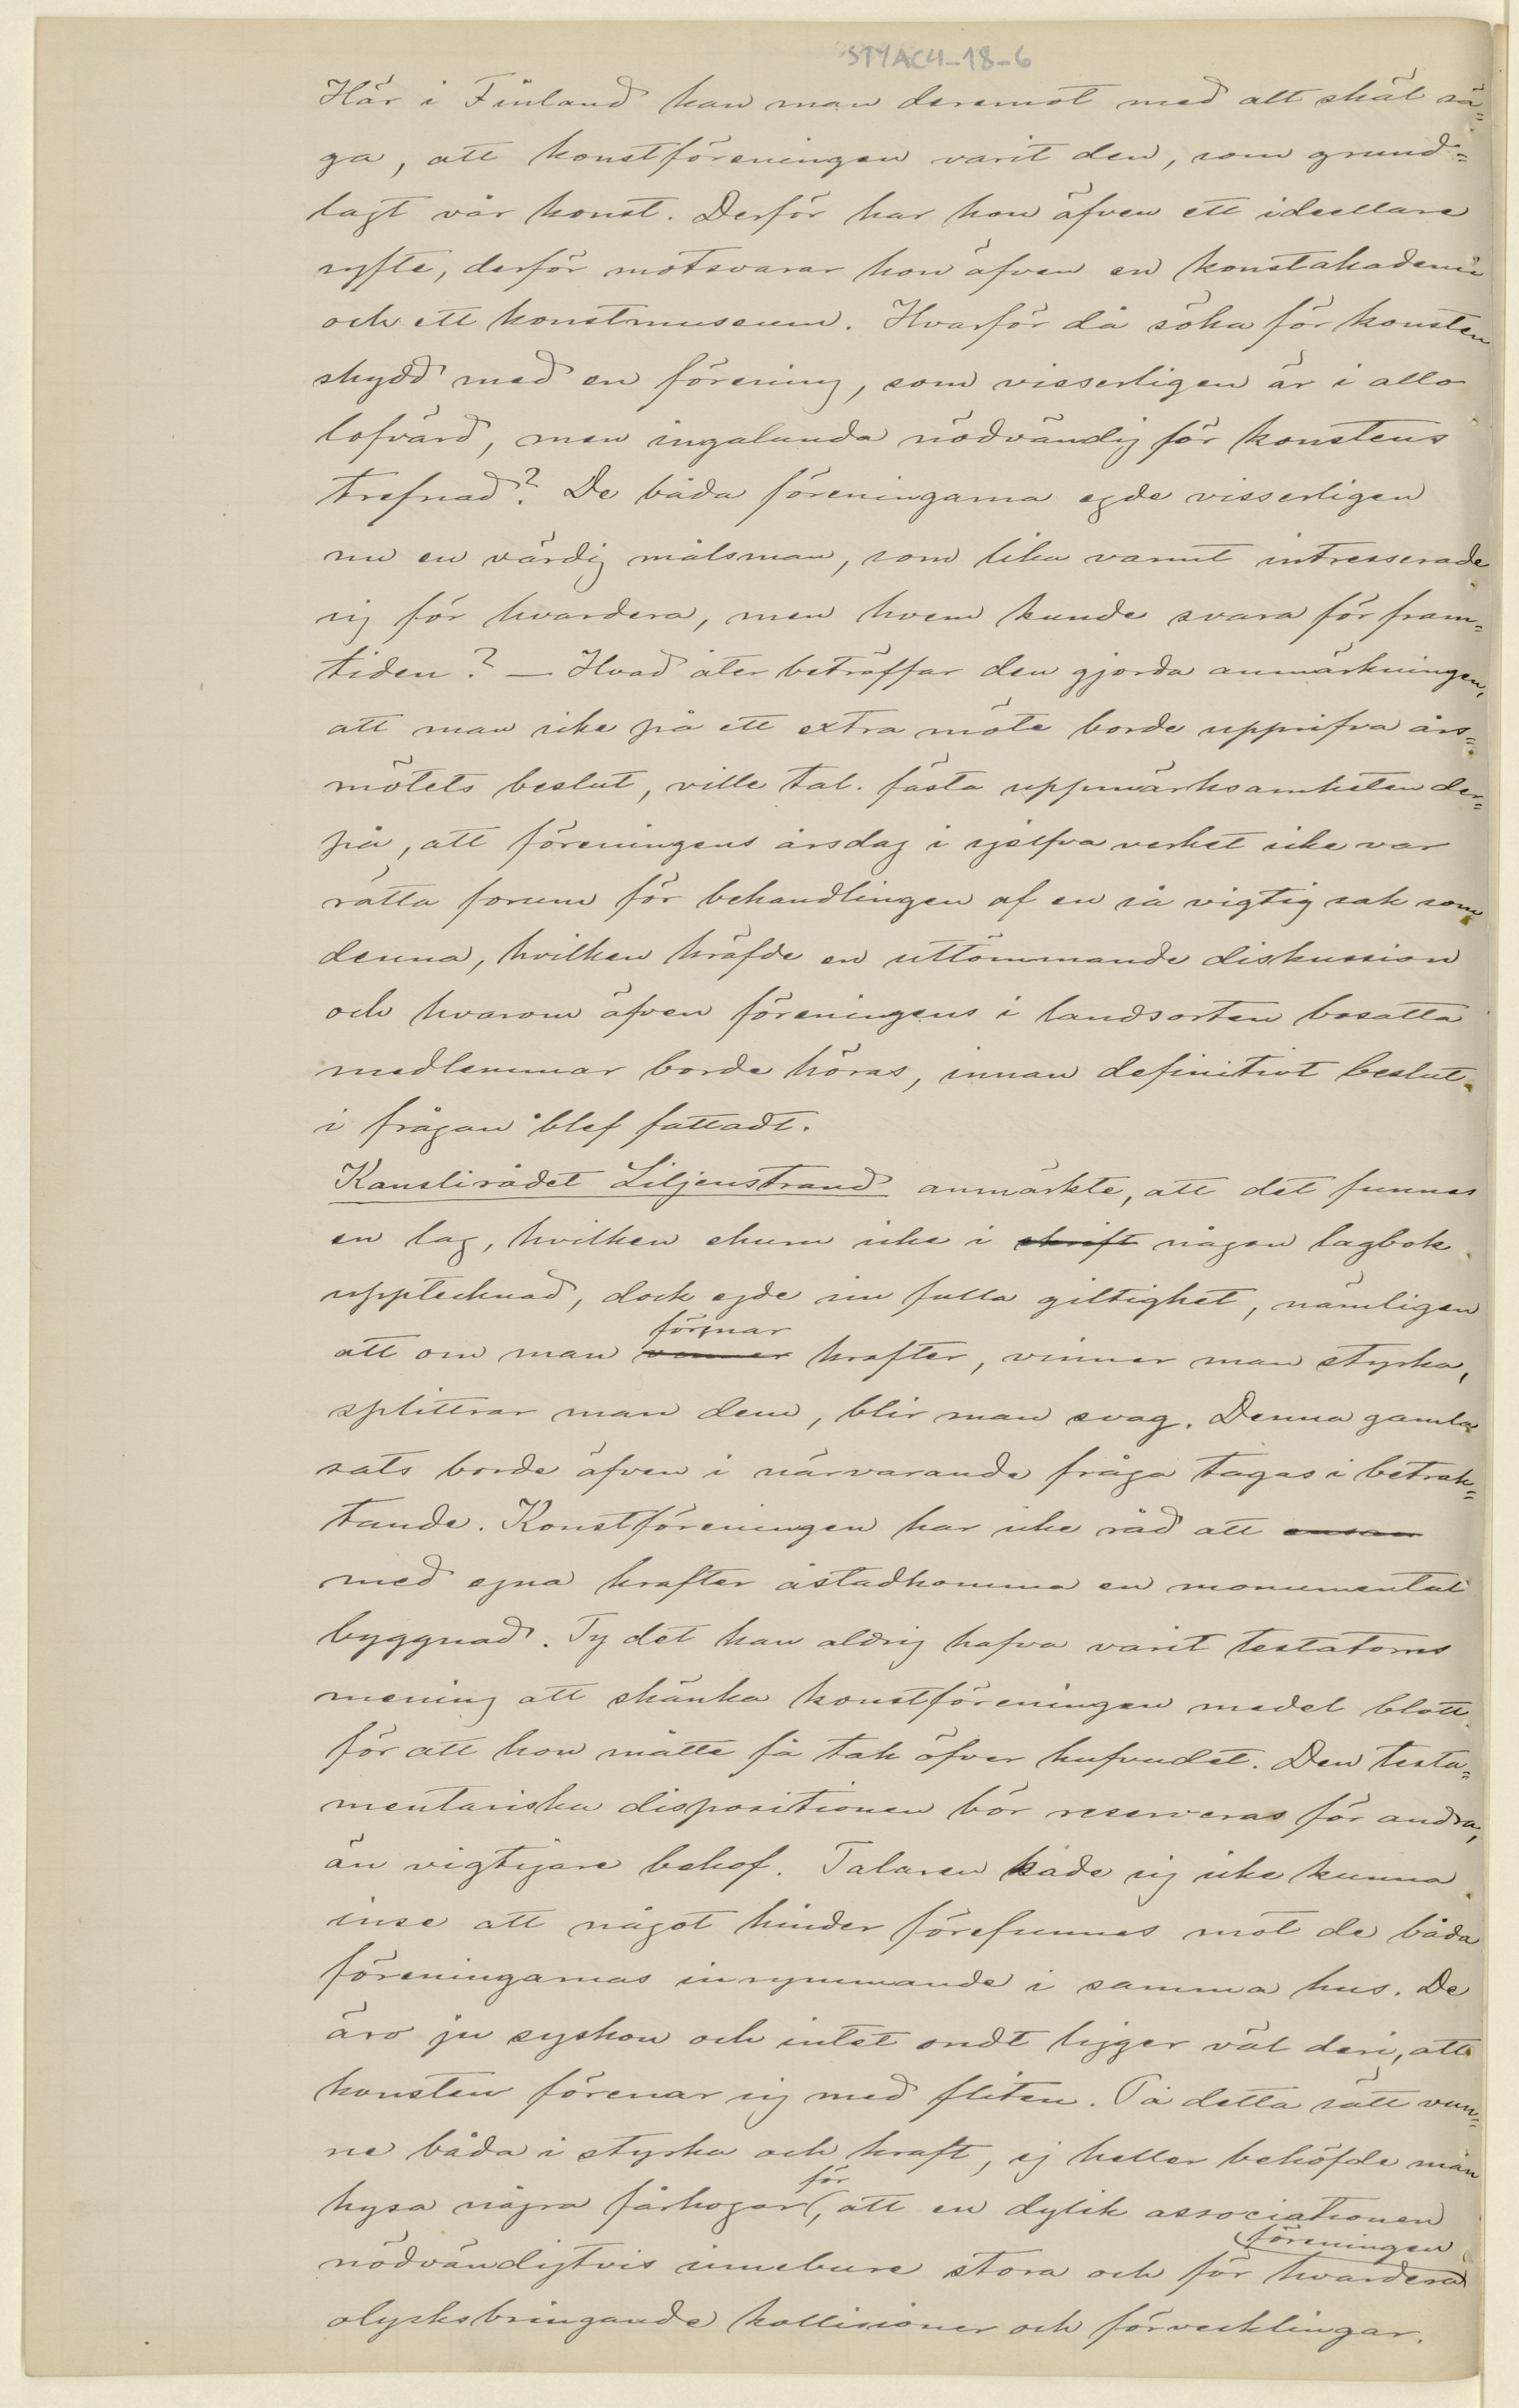 STYAC4-18-6
Här i Finland kan man deremot med allt skäl sä-
ga, att konstföreningen varit den, som grund-
lagt vår konst. Derför har hon äfven ett ideellare
syfte, derför motsvarar hon äfven en konstakademi
och ett konstmuseum. Hvarför då söka för konsten
skydd med en förening, som visserligen är i allo
lofvärd, men ingalunda nödvändig för konstens
trefnad? De båda föreningarna egde visserligen
nu en värdig målsman, som lika varmt intresserade
sig för hvardera, men hvem kunde svara för fram-
tiden? — Hvad åter beträffar den gjorda anmärkningen,
att man icke på ett extra möte borde upprifva års-
mötets beslut, ville tal. fästa uppmärksamheten der-
på, att föreningens årsdag i sjelfva verket icke var
rätta forum för behandlingen af en så vigtig sak som
denna, hvilken kräfde en uttömmande diskussion
och hvarom äfven föreningens i landsorten bosatta
medlemmar borde höras, innan definitivt beslut
i frågan blef fattadt.
Kanslirådet Liljenstrand anmärkte, att det funnes
en lag, hvilken ehuru icke i skrift någon lagbok
upptecknad, dock egde sin fulla giltighet, nämligen
förenar
att om man krafter, vinner man styrka,
splittrar man dem, blir man svag. Denna gamla
sats borde äfven i närvarande fråga tagas i betrak-
tande. Konstföreningen har icke råd att ensam
med egna krafter åstadkomma en monumental
byggnad. Ty det kan aldrig hafva varit testators
mening att skänka konstföreningen medel blott
för att hon måtte få tak öfver hufvudet. Den testa-
mentariska dispositionen bör reserveras för andra,
än vigtigare behof. Talaren sade sig icke kunna
inse att något hinder förefunnes mot de båda
föreningarnas inrymmande i samma hus. De
äro ju syskon och intet ondt ligger väl deri, att
konsten förenar sig med fliten. På detta sätt vun-
ne båda i styrka och kraft, ej heller behöfde man
för
hysa några farhogar, att en dylik associationen
föreningen
nödvändigtvis innebure stora och för hvardera
olycksbringande kollisioner och förvecklingar.